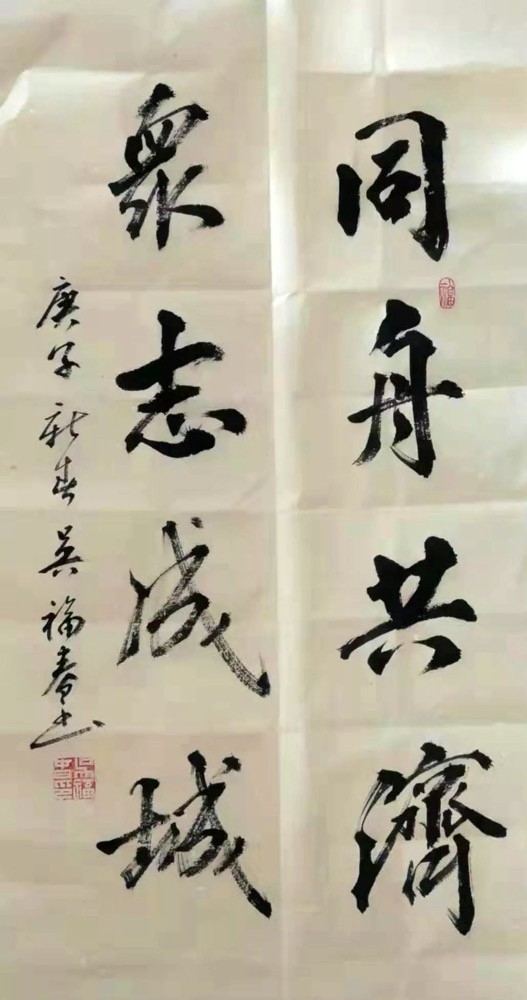 同舟共濟
衆志成城
庚子新春吳福春书